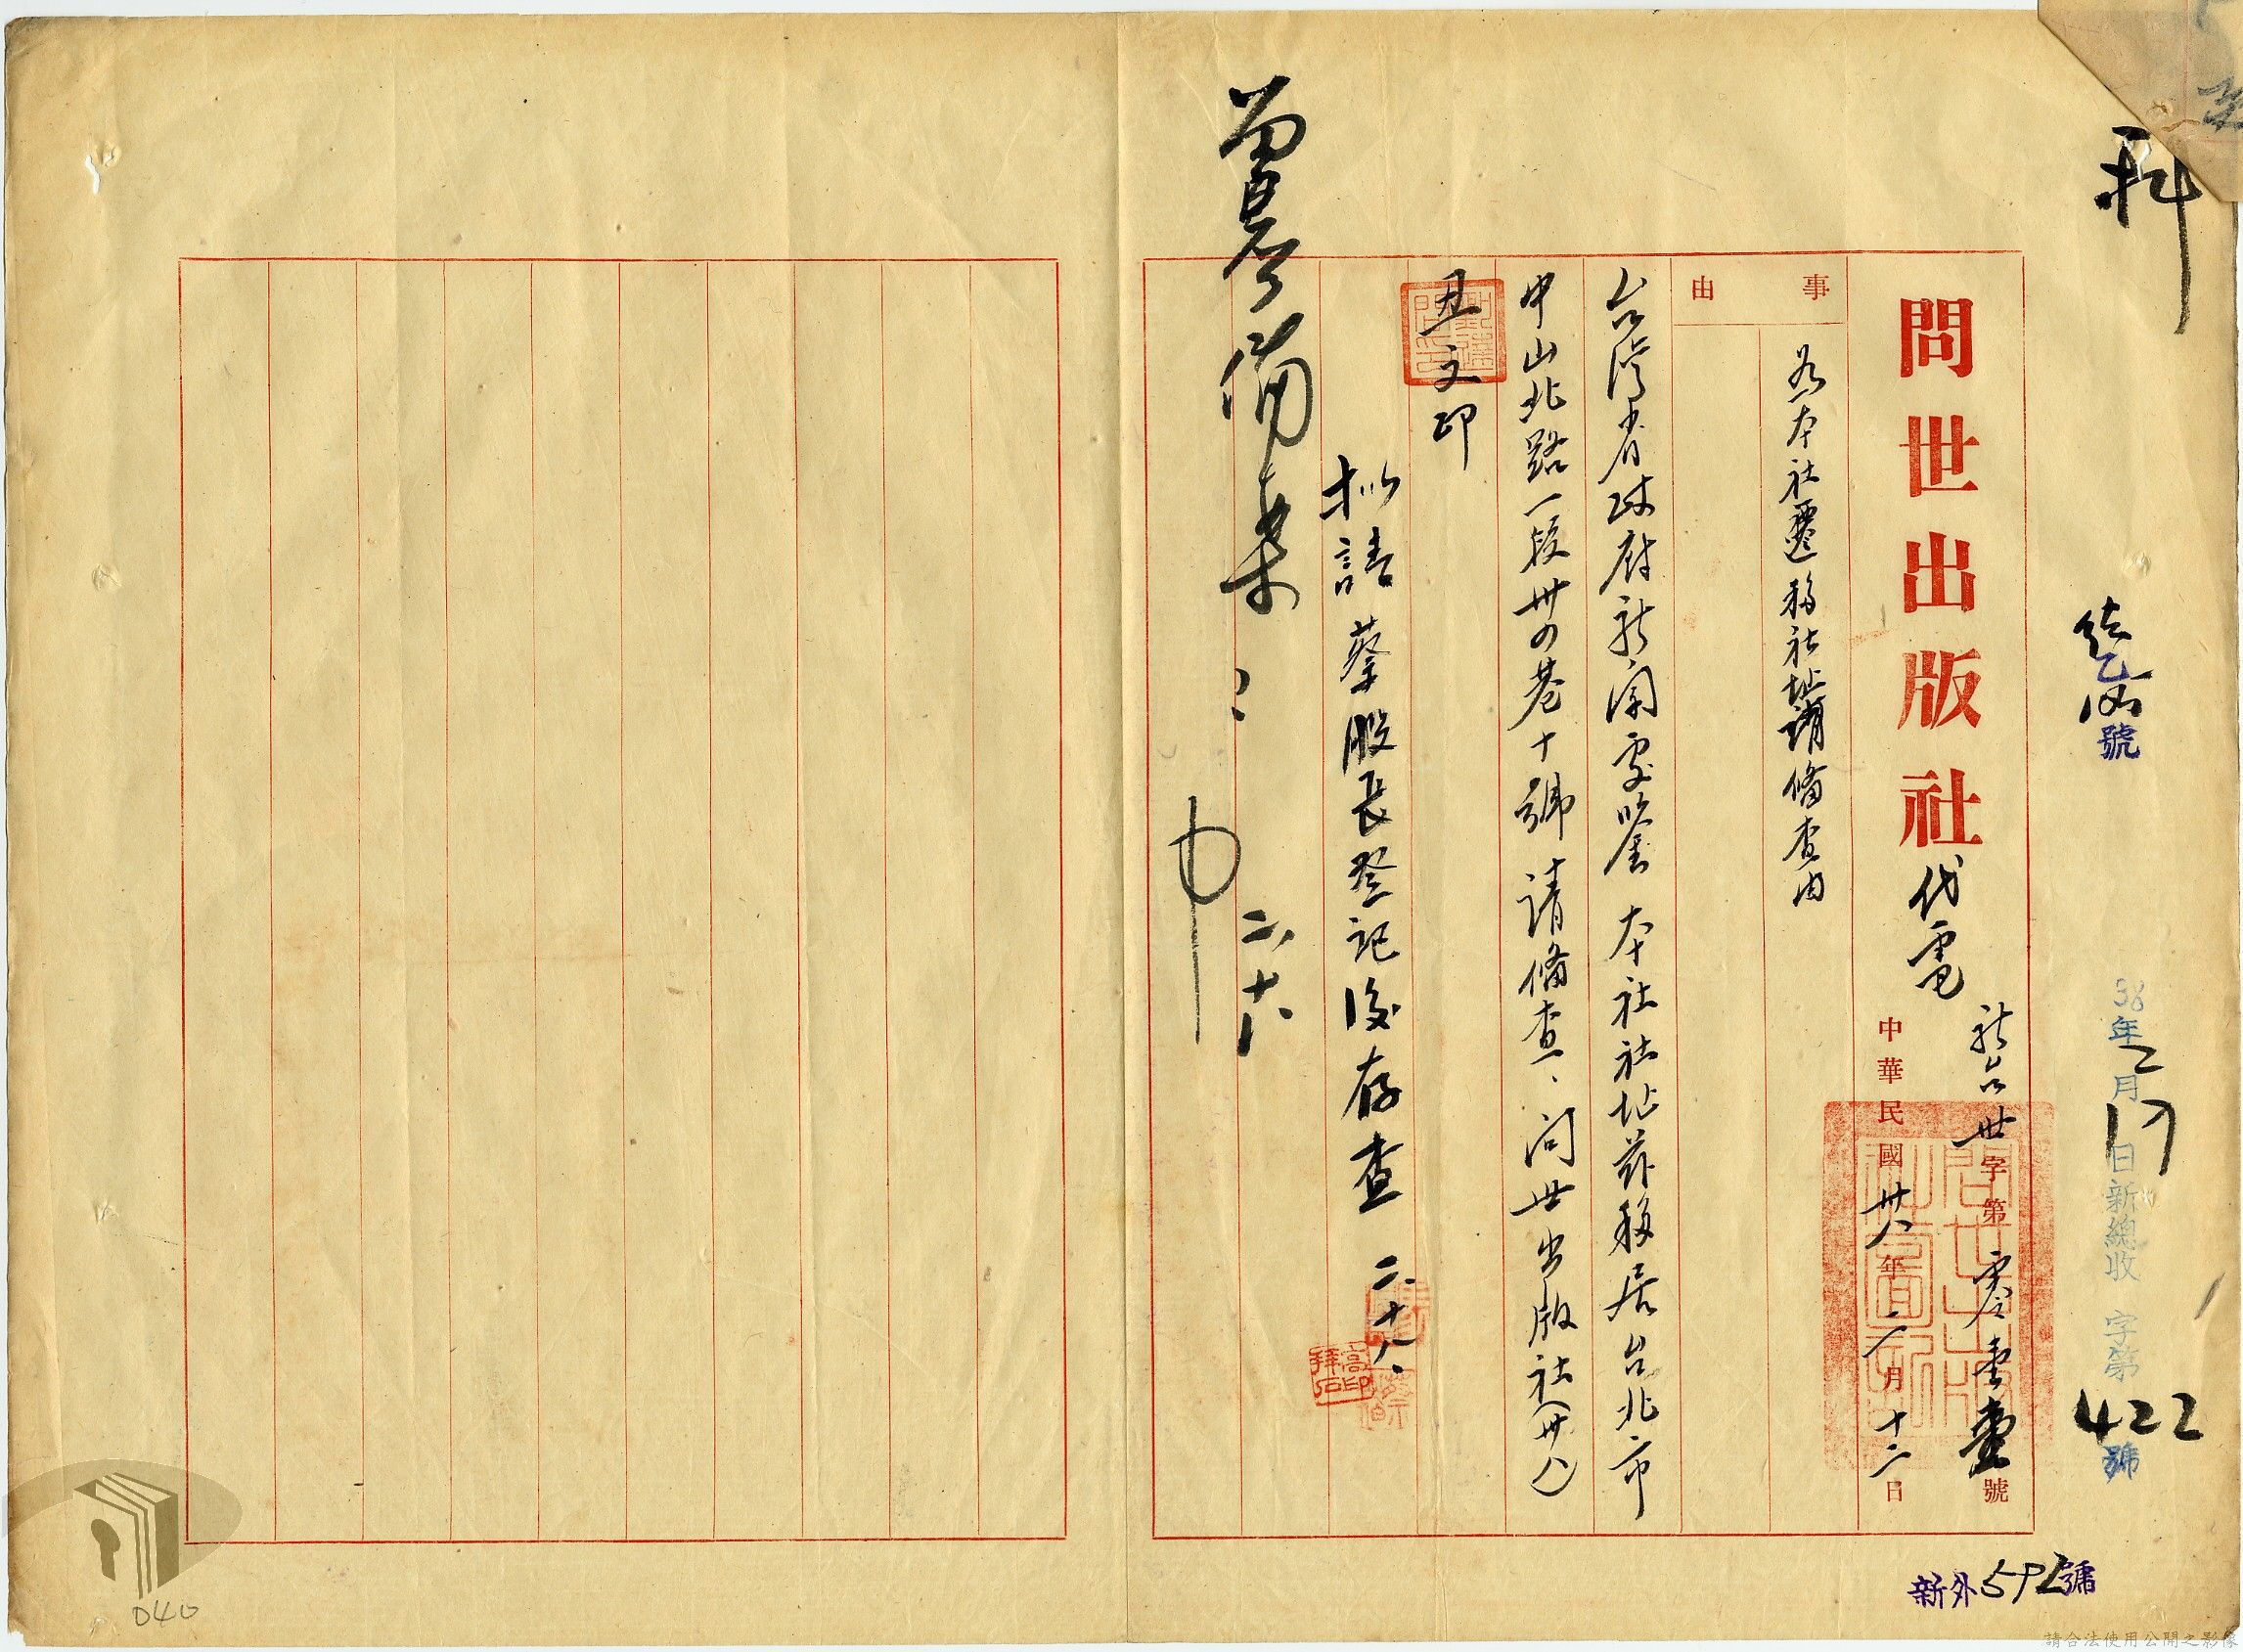 科
號
38年2月17日新總收字第422號
問世出版社代電
新台世字第零壹壹號
中華民國卅八年二月十二日
事由
為本社遷移社址請備查由
台灣省政府新聞處鑒 本社社址茲移居台北市
中山北路一段卅四巷十號請備查、問世出版社(卅八)
丑文印
擬請蔡股長登記後存查 二、十八、
高印拜石
備案
二、十八、
新外592號
040
請合法使用公開之影像